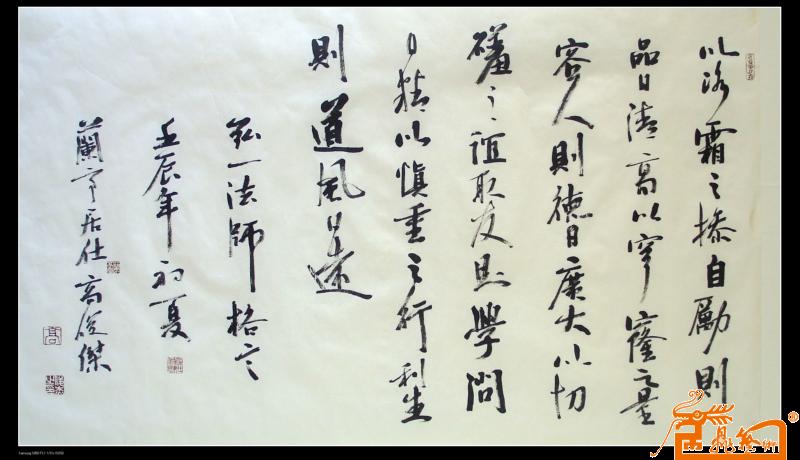 以冰霜之操自勵則
品日清高以穹窿之量
容人則德日廣大以切
磋之誼取友則學問
日精以慎重之行利生
則道風日遠
弘一法師格言
壬辰年初夏
蘭亭居仕高俊傑